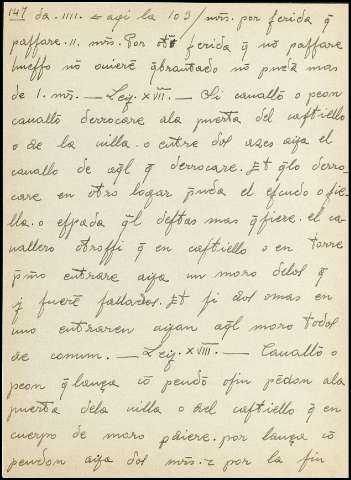 147 da .IIII. e aqi la 103/mrs. por ferida q̄
paffare .II. mrs. Por otra ferida q̄ no paffare
hueffo nō ouierē q̄brantado nō pueda mas
de I. mrs. — Ley. XVII. — Si cauallo o peon
cauallo derrocare ala puerta del caftiello
o de la uilla o entre dos azes aya el
cauallo de aql̄ q̄ derrocare. Et qlo derro-
care en otro logar prenda el efcudo o fie-
lla. o efpada ql̄ deftas mas q̄fiere. el ca-
uallero otroffi q̄ en caftiello o en torre
pm̄o entrare aya un moro delos q̄
y fuerē fallados. Et fi dos omes en
uno entraren ayan aql̄ moro todos
de comun. — Ley. XVIII. — Cauallo o
peon q̄ lança cō pendō ofin pēdon ala
puerta dela uilla o del caftiello q̄ en
cuerpo de moro pdiere. por lança cō
pendon aya dos mrs. τ por la fin